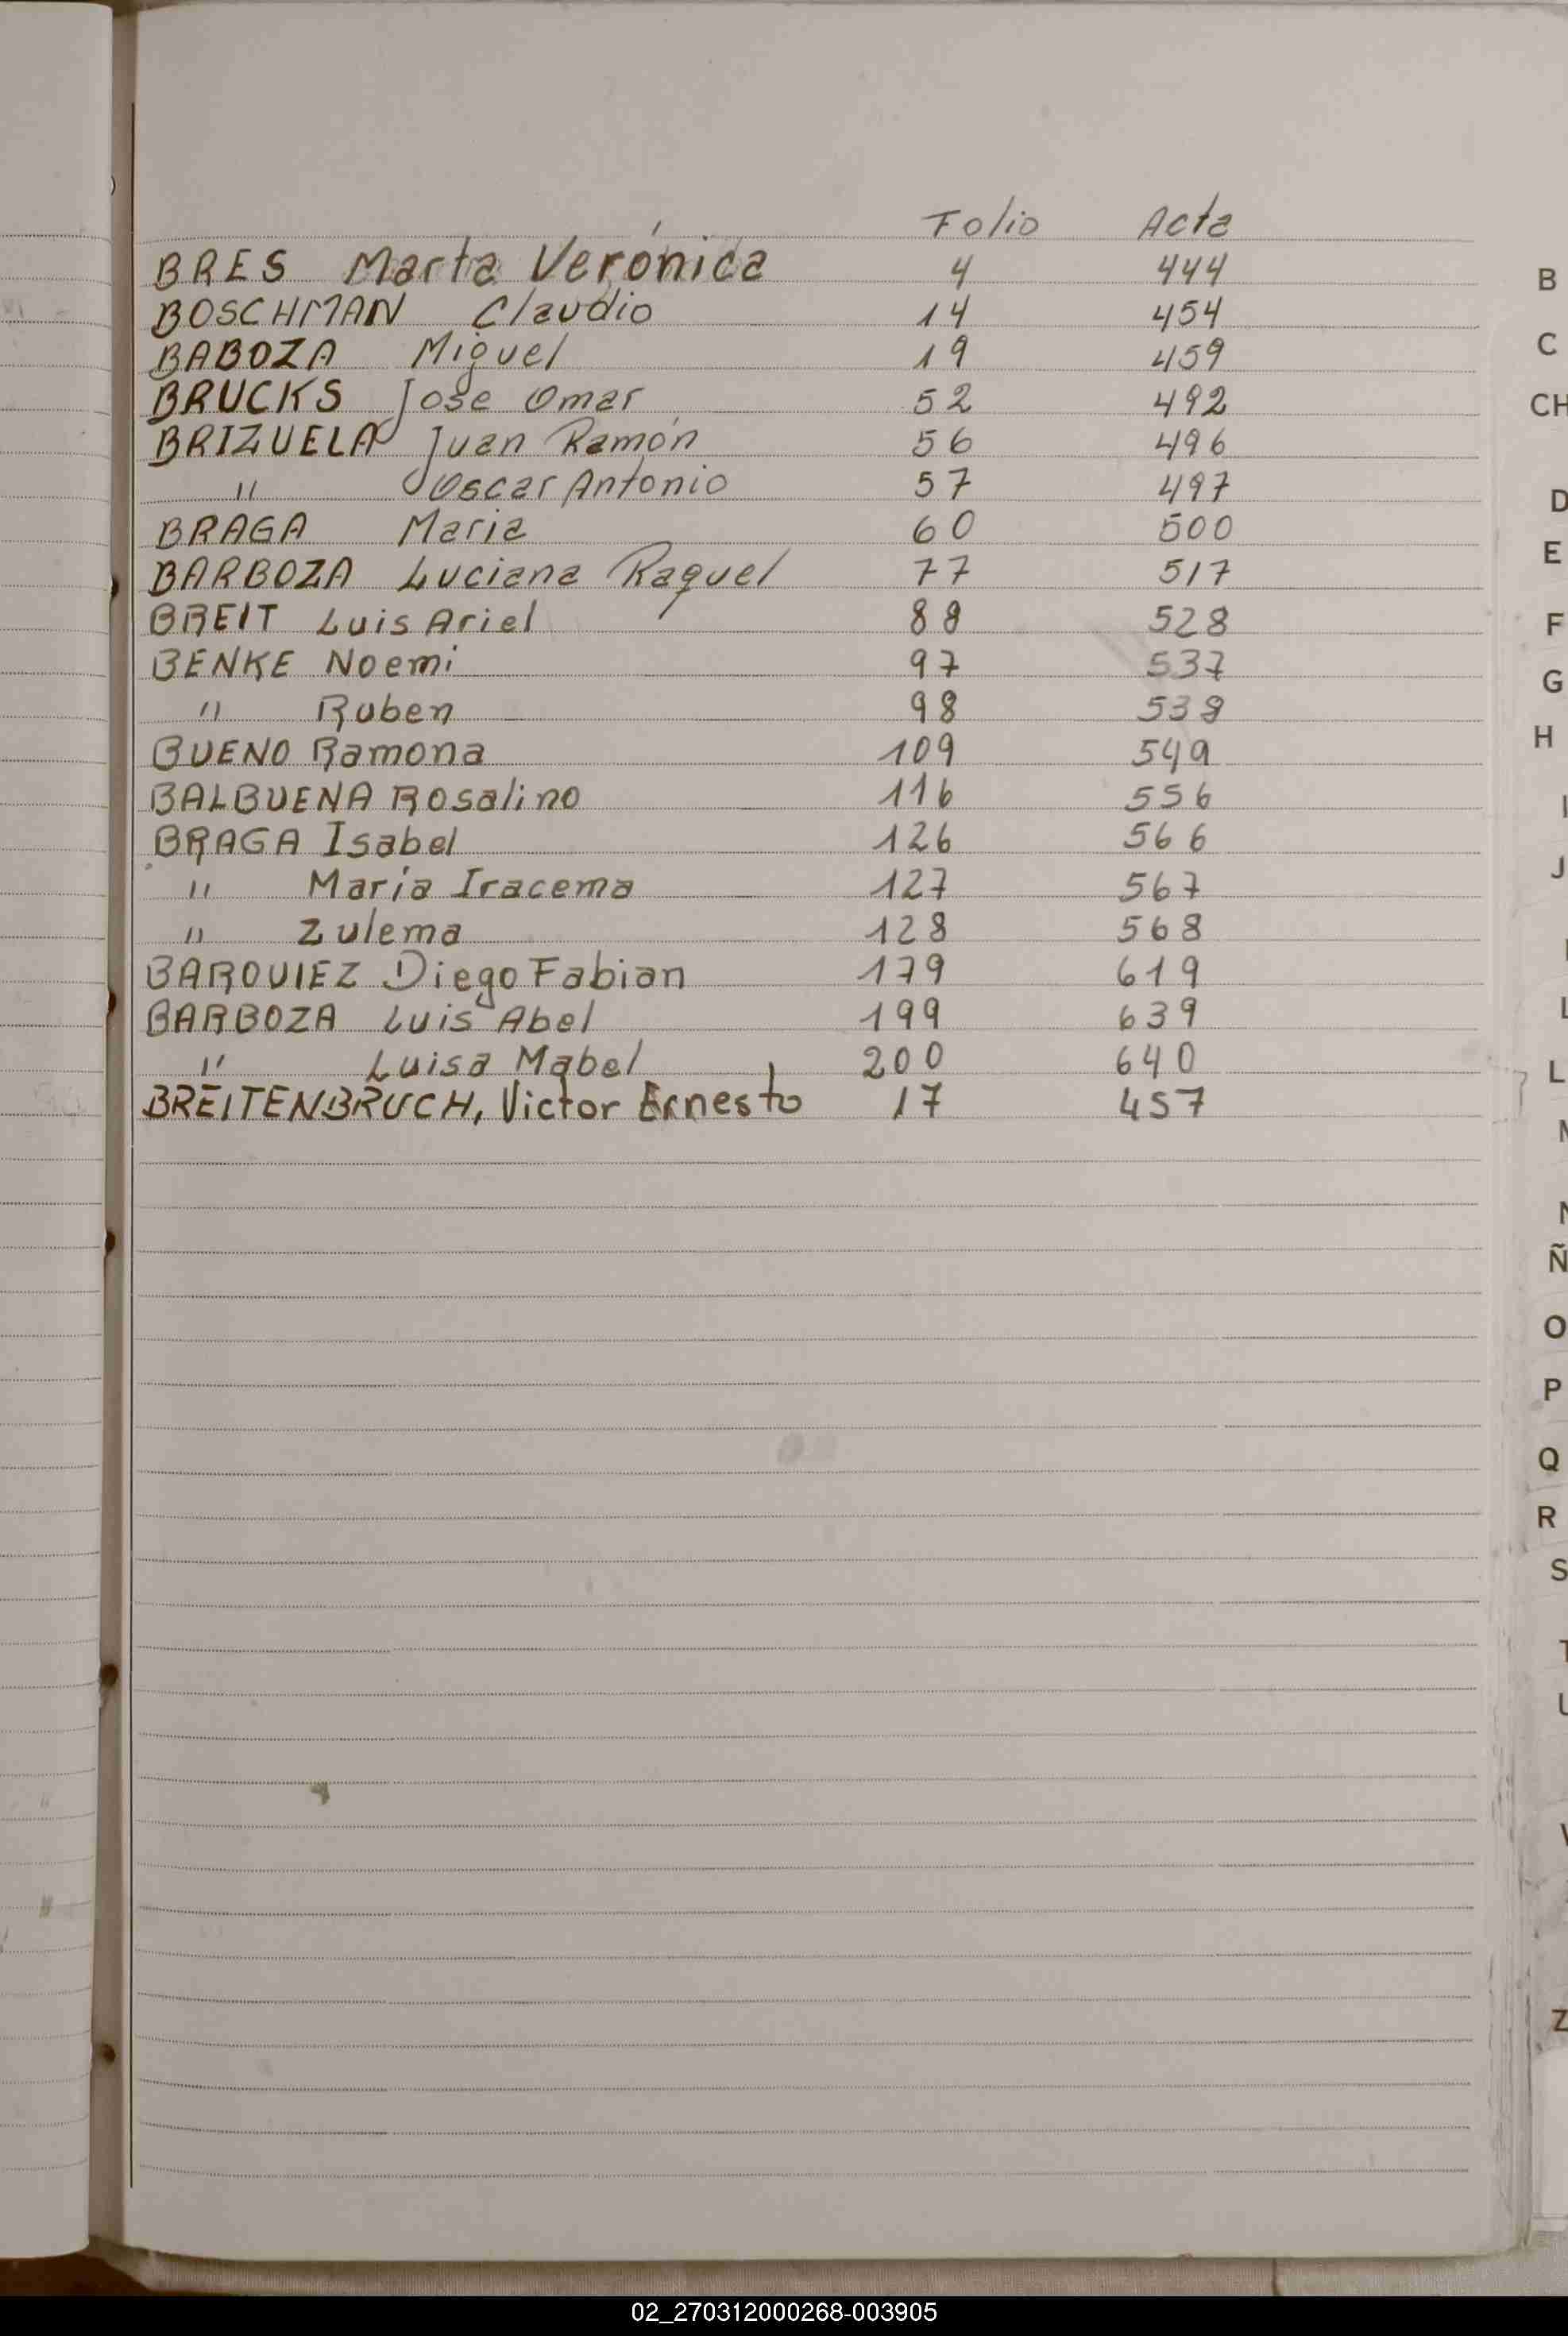 Folio Acta
BRES Marta Verónica 4 444
BOSCHMAN Claudio 14 454
BABOZA Miguel 19 459
BRUCKS Jose Omar 52 492
BRIZUELA Juan Ramón 56 496
" Oscar Antonio 57 497
BRAGA Maria 60 500
BARBOZA Luciana Raquel 77 517
BREIT Luis Ariel 88 528
BENKE Noemi 97 537
" Ruben 98 538
BUENO Ramona 109 549
BALBUENA Rosalino 116 556
BRAGA Isabel 126 566
" María Iracema 127 567
" Zulema 128 568
BAROUIEZ Diego Fabian 179 619
BARBOZA Luis Abel 199 639
" Luisa Mabel 200 640
BREITENBRUCH, Victor Ernesto 17 457
B
C
CH
D
E
F
G
H
I
J
L
L
M
N
Ñ
O
P
Q
R
S
T
U
V
Z
02_270312000268-003905